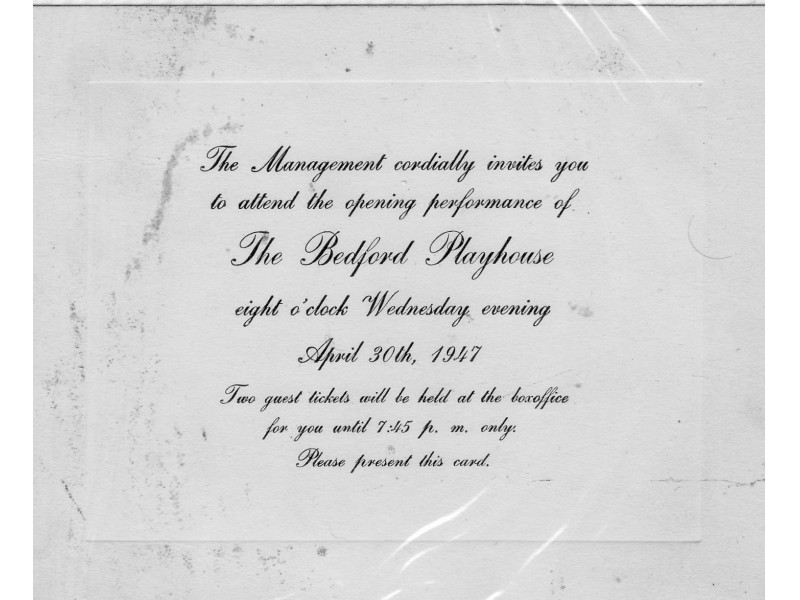 The Management cordially invites you
to attend the opening performance of
The Bedford Playhouse
eight o'clock Wednesday evening
April 30th, 1947
Two guest tickets will be held at the boxoffice
for you until 7:45 p. m. only.
Please present this card.